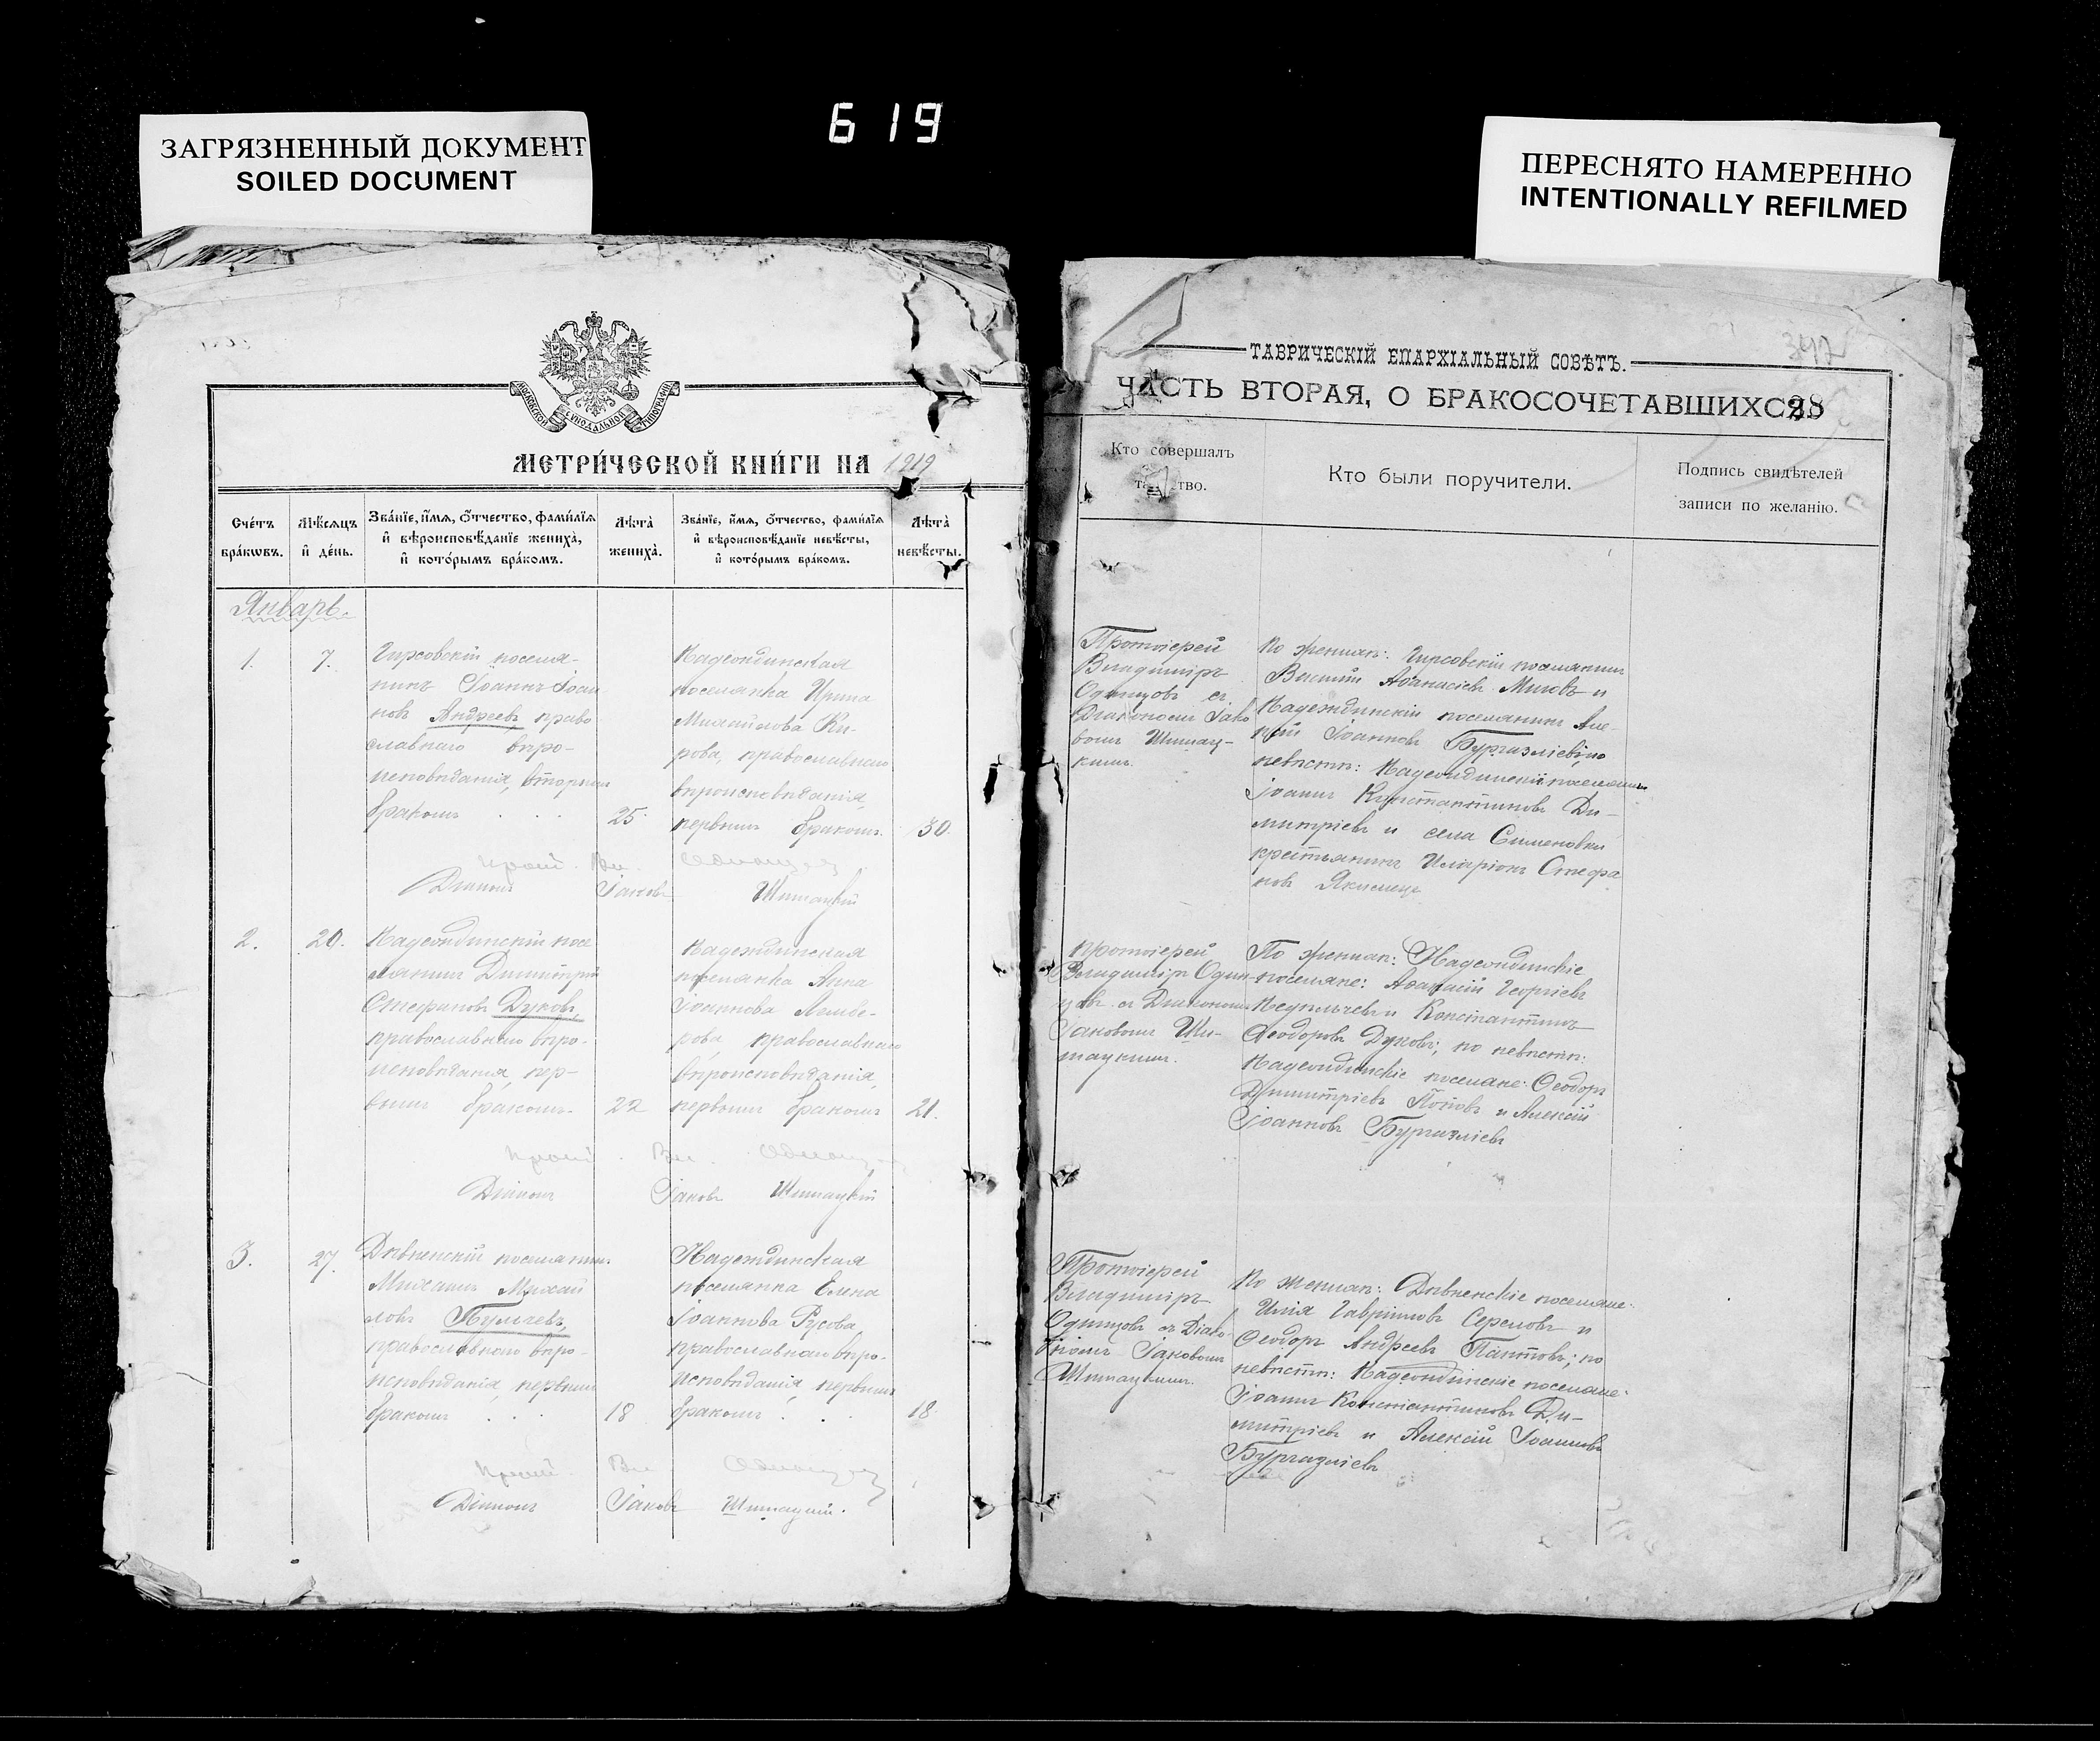 6 19
ЗАГРЯЗНЕННЫЙ ДОКУМЕНТ
SOILED DOCUMENT
ПЕРЕСНЯТО НАМЕРЕННО
INTENTIONALLY REFILMED
МЕТРИ́ЧЕСКОЙ КНИ́ГИ НА 1919
Сче́тъ
бра́кωвъ.
Мѣ́сяцъ
и҆ де́нь.
Зва́нїе, и҆́мѧ, ѻ҆́тчество, фами́лїѧ
и҆ вѣроисповѣ́данїе жениха̀,
и҆ кото́рымъ бра́комъ.
Лѣ́та
жениха̀.
Зва́нїе, и҆́мѧ, ѻ҆́тчество, фами́лїѧ
и҆ вѣроисповѣ́данїе невѣ́сты,
и҆ кото́рымъ бра́комъ.
Лѣ́та
невѣ́сты.
Январь.
1.
7.
Гирсовскій поселя-
нинъ Іоаннъ Іоан
новъ Андреевъ, право-
славнаго вѣро-
исповѣданія, вторымъ
бракомъ . . .
25.
Надеждинская
поселянка Ирина
Михайлова Ки-
рова, православнаго
вѣроисповѣданія,
первымъ бракомъ.
30.
Прот. Вл. Одинцов
Діаконъ Іаковъ Шимацкій
2.
20.
Надеждинскій посе
лянинъ Димитрій
Стефановъ Дуковъ,
православнаго вѣро-
исповѣданія, пер-
вымъ бракомъ.
22
Надеждинская
поселянка Анна
Іоаннова
православнаго
вѣроисповѣданія,
первымъ бракомъ
21.
Прот. Вл. Одинцов
Діаконъ Іаковъ Шимацкій
3.
27.
Дивненскій поселянин.
Михаилъ Михай
ловъ
православнаго вѣро-
исповѣданія, первымъ
бракомъ . . .
18
Надеждинская
поселянка Елена
Іоаннова Русова,
православнаго вѣро-
исповѣданія, первымъ
бракомъ . . .
18.
Прот. Вл. Одинцов
Діаконъ Іаковъ Шимацкій.
342
ТАВРИЧЕСКІЙ ЕПАРХІАЛЬНЫЙ СОВѢТЪ.
ЧАСТЬ ВТОРАЯ, О БРАКОСОЧЕТАВШИХСЯ
Кто совершалъ
Кто были поручители.
Подпись свидѣтелей
записи по желанію.
Протоіерей
Владиміръ
Одинцовъ съ
Діакономъ Іако
вомъ Шимац-
кимъ.
По женихѣ: Гирсовскій поселянинъ
Василій Аѳанасіевъ Митовъ и
Надеждинскій поселянинъ Але
ксій Іоанновъ Бургазліевъ; по
невѣстѣ: Надеждинскій поселянинъ
Іоаннъ Константиновъ Ди-
митріевъ и села Семеновки
крестьянинъ Иларіонъ Стефа
новъ
Протоіерей
Владиміръ Один-
цовъ съ Діакономъ
Іаковомъ Ши-
мацкимъ.
По женихѣ: Надеждинскіе
поселяне: Аѳанасій Георгіевъ
и Константинъ
Ѳеодоровъ Дуковъ; по невѣстѣ:
Надеждинскіе поселяне: Ѳеодоръ
Димитріевъ Поповъ и Алексій
Іоанновъ Бургазліевъ
Протоіерей
Владиміръ
Одинцовъ съ Діако-
номъ Іаковомъ
Шимацкимъ.
По женихѣ: Дивненскіе поселяне:
Илія Гавріиловъ и
Ѳеодоръ Андреевъ Пантовъ; по
невѣстѣ: Надеждинскіе поселяне:
Іоаннъ Константиновъ Ди-
митріевъ и Алексій Іоанновъ
Бургазліевъ